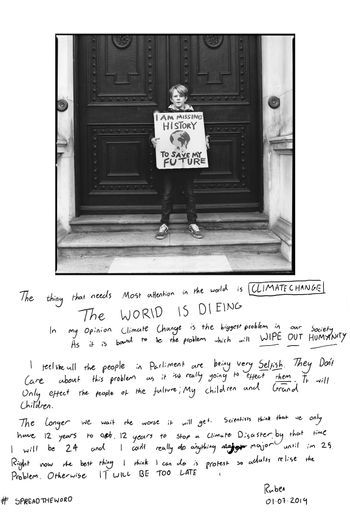 I AM MISSING
HISTORY
TO SAVE MY
FUTURE
The thing that needs Most attention in the world is CLIMATE CHANGE
The WORLD IS DIEING
In my Opinion Climate Change is the biggest problem in our Society
As it is bound to be the problem which will WIPE OUT HUMANITY
I feel like all the people in Parliment are being very Selfish They Don't
Care about this problem as it isn't really going to effect them It will
Only effect the people of the future; My children and Grand
Children.
The Longer we wait the worse it will get. Scientists think that we only
have 12 years to act, 12 years to stop a Climate Disaster by that time
I will be 24 and I can't really do anything major until im 25
Right now the best thing I think I can do is protest so adults relise the
Problem. Otherwise IT WILL BE TOO LATE
# SPREADTHEWORD
Ruben
01.07.2019